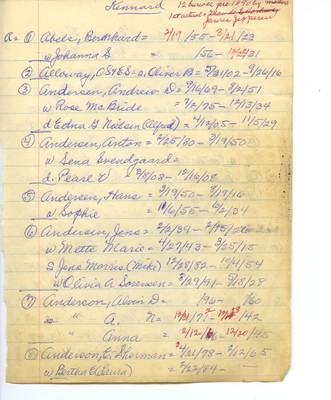 Kennard 12 buried pre 1890 by
1st actual =
James Jepperson
a = ① Abels, Bernhard = 2/19/55 - 3/21/23
w Johanna S. /56 - 12/22/31
② Alloway, = w, Oliver B = 5/31/02 - 9/26/16
③ Andersen, Andrew D = 9/16/69 - 8/2/51
w Rose McBride = 9/2/75 - 12/13/34
d Edna G Nielsen (Alfred) = 4/12/05 - 11/5/29
④ Andersen, Anton = 2/25/80 - 3/19/50
w Sena Svendgaard =
d. Pearl V = 2/8/08 - 12/16/08
⑤ Andersen, Hans = 3/19/50 - 3/19/16
w Sophie = 10/6/55 - 6/2/34
⑥ Andersen, Jens = 2/2/39 - 2/15/26
w Mette Marie = 4/27/43 - 3/25/15
s Jens Morris (Mike) 12/28/82 - 10/4/54
w Olivia A Sorensen = 3/29/91 - 5/18/28
⑦ Anderson, Alvin D = /96 - /60
" A. N = /42
" Anna = 2/12/ 12/20/45
⑧ Anderson, C, Sherman = 4/21/78 - 2/12/65
w Bertha E (Laura) = 2/22/84 -